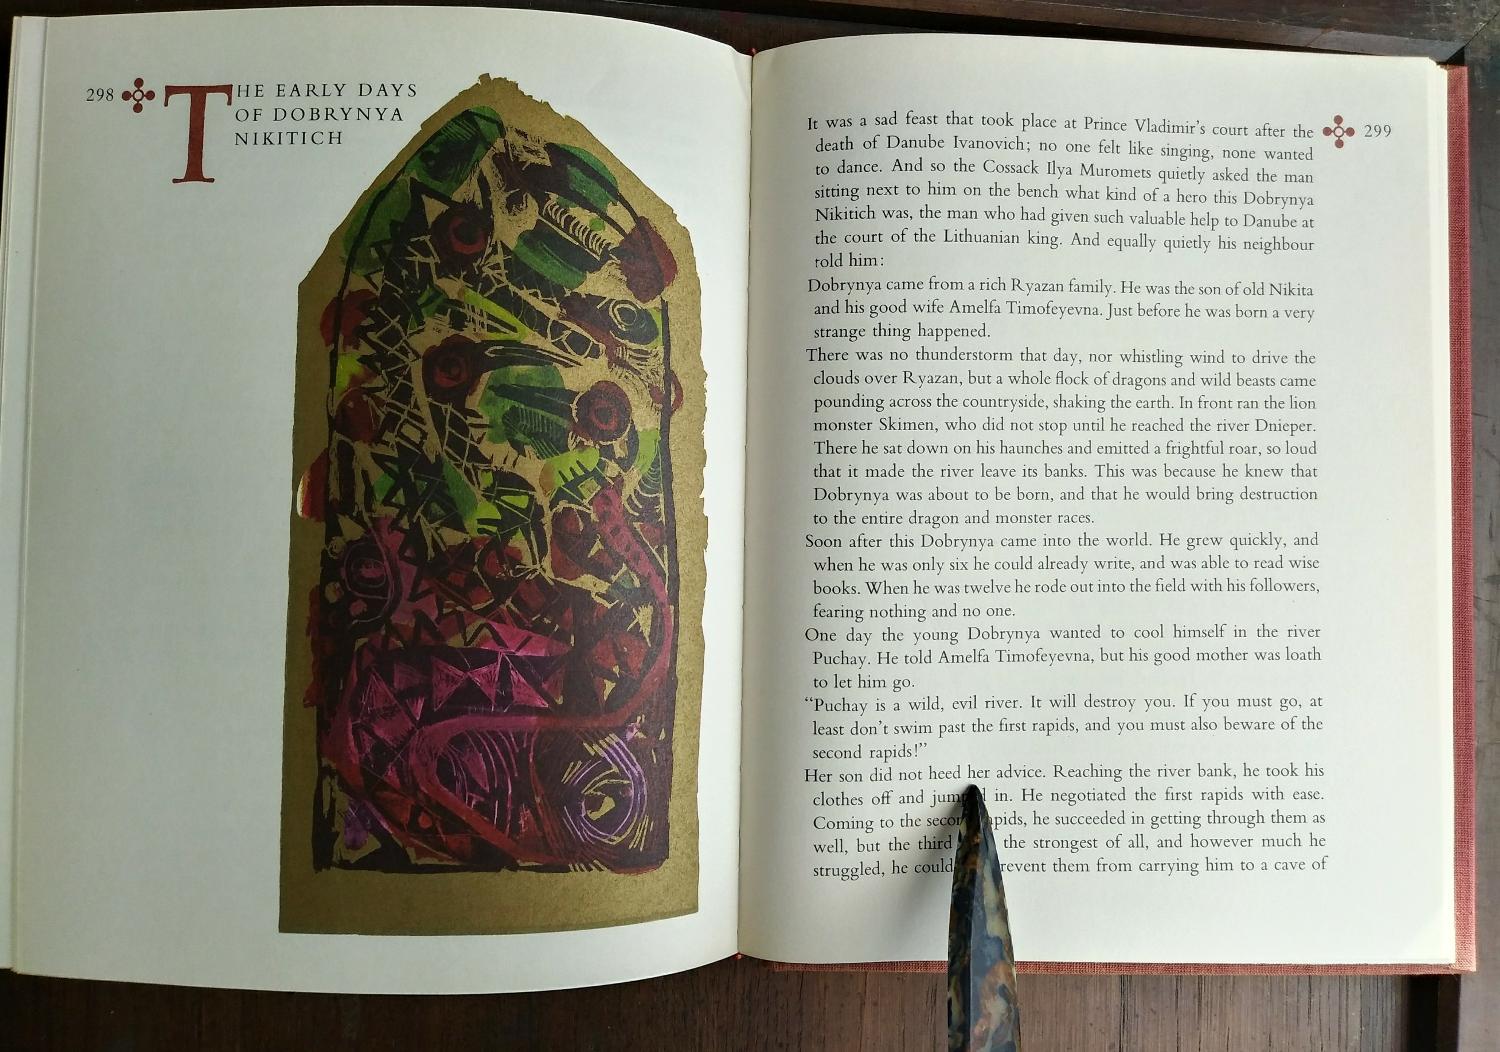 298
THE EARLY DAYS
OF DOBRYNYA
NIKITICH
299
It was a sad feast that took place at Prince Vladimir's court after the
death of Danube Ivanovich; no one felt like singing, none wanted
to dance. And so the Cossack Ilya Muromets quietly asked the man
sitting next to him on the bench what kind of a hero this Dobrynya
Nikitich was, the man who had given such valuable help to Danube at
the court of the Lithuanian king. And equally quietly his neighbour
told him:
Dobrynya came from a rich Ryazan family. He was the son of old Nikita
and his good wife Amelfa Timofeyevna. Just before he was born a very
strange thing happened.
There was no thunderstorm that day, nor whistling wind to drive the
clouds over Ryazan, but a whole flock of dragons and wild beasts came
pounding across the countryside, shaking the earth. In front ran the lion
monster Skimen, who did not stop until he reached the river Dnieper.
There he sat down on his haunches and emitted a frightful roar, so loud
that it made the river leave its banks. This was because he knew that
Dobrynya was about to be born, and that he would bring destruction
to the entire dragon and monster races.
Soon after this Dobrynya came into the world. He grew quickly, and
when he was only six he could already write, and was able to read wise
books. When he was twelve he rode out into the field with his followers,
fearing nothing and no one.
One day the young Dobrynya wanted to cool himself in the river
Puchay. He told Amelfa Timofeyevna, but his good mother was loath
to let him go.
“Puchay is a wild, evil river. It will destroy you. If you must go, at
least don't swim past the first rapids, and you must also beware of the
second rapids!”
Her son did not heed her advice. Reaching the river bank, he took his
clothes off and jumped in. He negotiated the first rapids with ease.
Coming to the second rapids, he succeeded in getting through them as
well, but the third the strongest of all, and however much he
struggled, he could prevent them from carrying him to a cave of